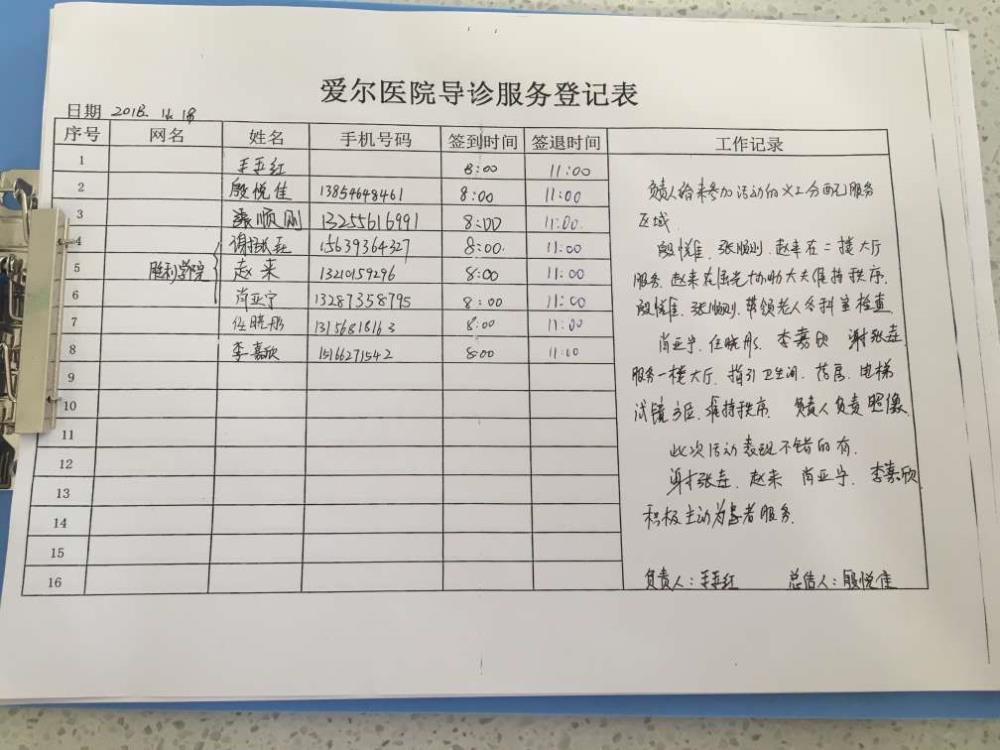 爱尔医院导诊服务登记表
日期 2018. 11. 18
序号 网名 姓名 手机号码 签到时间 签退时间 工作记录
1 王亚红 8:00 11:00
2 殷悦佳 13854648461 8:00 11:00
3 张顺刚 13255616991 8:00 11:00
4 谢张垚 15639364327 8:00 11:00
5 胜利学院 赵来 13210159296 8:00 11:00
6 肖亚宁 13287358795 8:00 11:00
7 任晓彤 13156818163 8:00 11:00
8 李嘉欣 15166271542 8:00 11:00
9
10
11
12
13
14
15
16
负责人给来参加活动的义工分配服务
区域
殷悦佳、张顺刚、赵来在二楼大厅
服务.赵来在屈光协助大夫维持秩序,
殷悦佳、张顺刚,带领老人各科室检查.
肖亚宁、任晓彤、李嘉欣 谢张垚
服务一楼大厅.指引卫生间、药房、电梯
试镜方位、维持秩序. 负责人负责照像.
此次活动表现不错的有.
谢张垚、赵来 肖亚宁、李嘉欣
积极主动为患者服务.
负责人:王亚红 总结人:殷悦佳